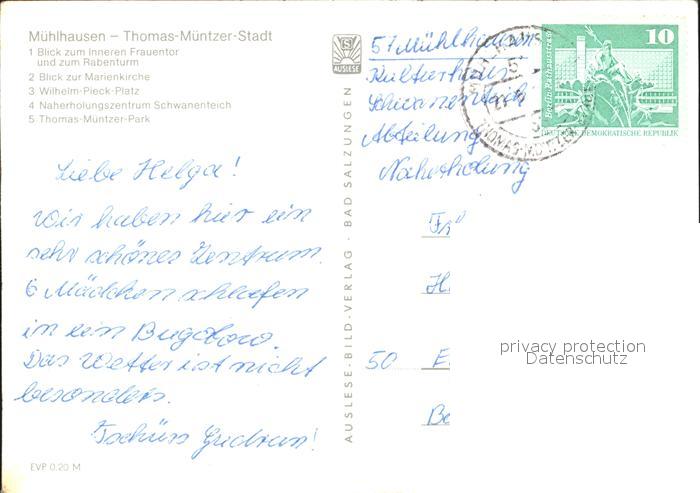 Mühlhausen – Thomas-Müntzer-Stadt
1 Blick zum Inneren Frauentor
und zum Rabenturm
2 Blick zur Marienkirche
3 Wilhelm-Pieck-Platz
4 Naherholungszentrum Schwanenteich
5 Thomas-Müntzer-Park
Liebe Helga!
Wir haben hier ein
sehr schönes Zentrum.
6 Mädchen schlafen
in ein Bugolow.
Das Wetter ist nicht
besonders.
Tschüss Gudrun!
EVP 0,20 M
AUSLESE
AUSLESE-BILD-VERLAG · BAD SALZUNGEN
57 Mühlhausen
Kulturhaus
Schwanenteich
Abteilung
Naherholung
10
Berlin, Rathausstraße
DEUTSCHE DEMOKRATISCHE REPUBLIK
THOMAS-MÜNTZER
Fr
H
50 E
Be
privacy protection
Datenschutz